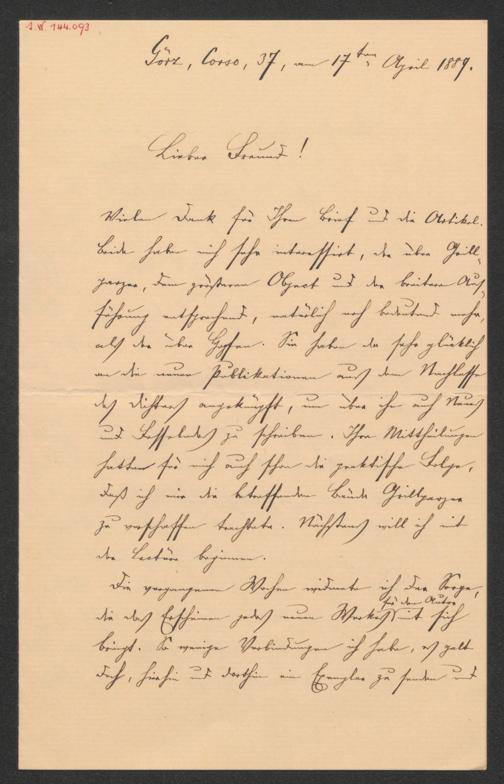 I.N. 144.093
Görz, Corso, 37, am 17ten April 1889.
Lieber Freund!
Vielen Dank für Ihren Brief und die Artikel.
Beide haben mich sehr interessirt, der über Grill-
parzer, dem größeren Object und der breiteren Aus-
führung entsprechend, natürlich noch bedeutend mehr,
als der über Hopfen. Sie haben da sehr glücklich
an die neuen Publikationen aus dem Nachlasse
des Dichters angeknüpft, um über ihn auch Neues
und Fesselndes zu schreiben. Ihre Mittheilungen
hatten für mich auch schon die praktische Folge,
daß ich mir die betreffenden Bände Grillparzer
zu verschaffen trachtete. Nächstens will ich mit
der Lectüre beginnen.
Die vergangenen Wochen widmete ich der Sorge,
die das Erscheinen jedes neuen Werkes für den Autor mit sich
bringt. So wenige Verbindungen ich habe, es galt
doch, hierhin und dorthin ein Exemplar zu senden und